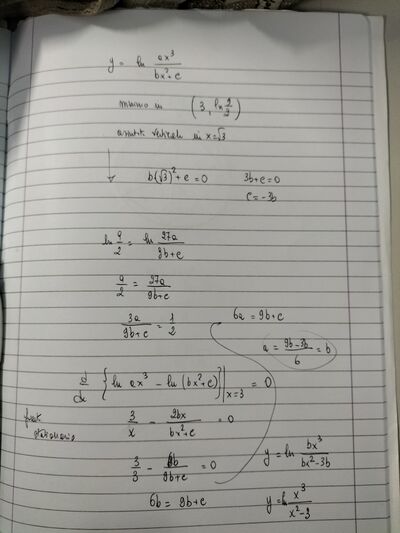 y = ln ax³/(bx²+c)
minimo in (3, ln 9/2)
asintoto verticale in x=√3
b(√3)²+c=0 3b+c=0
c=-3b
ln 9/2 = ln 27a/(9b+c)
9/2 = 27a/(9b+c)
3a/(9b+c) = 1/2 6a=9b+c
a = (9b-3b)/6 = b
d/dx {ln ax³ - ln (bx²+c)}|x=3 = 0
punto
stazionario
3/x - 2bx/(bx²+c) = 0
3/3 - 6b/(9b+c) = 0 y=ln bx³/(bx²-3b)
6b = 9b+c y=ln x³/(x²-3)